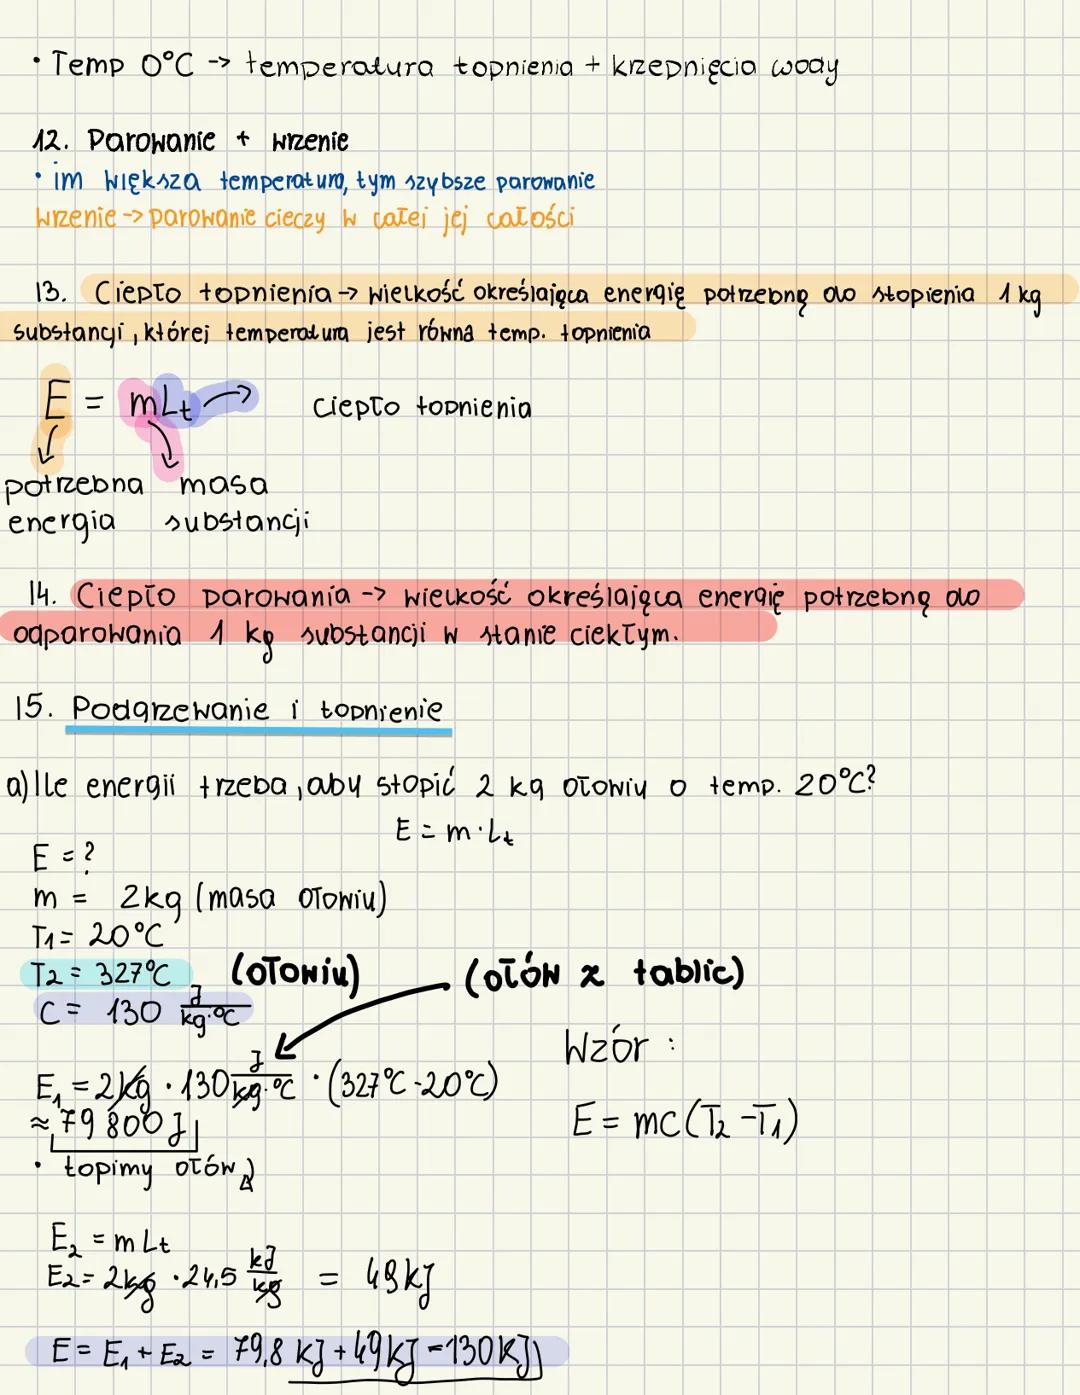 • Temp 0°C -> temperatura topnienia + krzepnięcia wody
12. Parowanie + wrzenie
• im większa temperatura, tym szybsze parowanie
wrzenie -> parowanie cieczy w całej jej całości
13. Ciepło topnienia -> wielkość określająca energię potrzebną do stopienia 1 kg
substancji, której temperatura jest równa temp. topnienia
E = mLt -> ciepło topnienia
potrzebna masa
energia substancji
14. Ciepło parowania -> wielkość określająca energię potrzebną do
odparowania 1 kg substancji w stanie ciekłym.
15. Podgrzewanie i topnienie
a) Ile energii trzeba, aby stopić 2 kg ołowiu o temp. 20°C?
E = m·Lt
E = ?
m = 2kg (masa ołowiu)
T1 = 20°C
T2 = 327°C (ołowiu) (ołów z tablic)
C = 130 J/kg·°C
Wzór:
E1 = 2kg · 130 J/kg·°C · (327°C-20°C)
E = mc(T2 - T1)
≈ 79 800 J
• topimy ołów
E2 = mLt
E2 = 2kg · 24,5 kJ/kg = 49kJ
E = E1 + E2 = 79,8 kJ + 49kJ = 130kJ